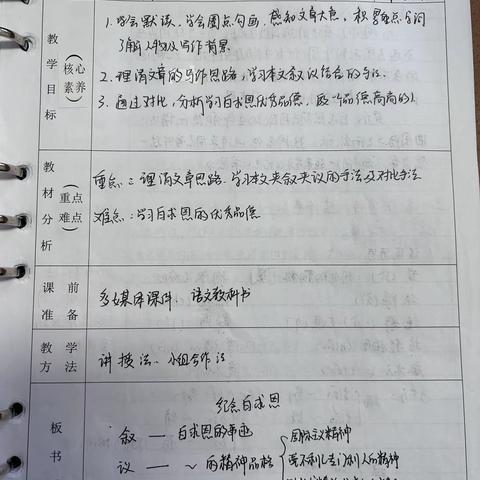 教学目标（核心素养）
1. 学会默读，学会圈点勾画，感知文章大意，积累重点字词
了解人物及写作背景.
2. 理清文章的写作思路，学习本文叙议结合的写法.
3. 通过对比，分析学习白求恩优秀品德，做个品德高尚的人
教材分析（重点难点）
重点：理清文章思路. 学习本文夹叙夹议的手法及对比手法
难点：学习白求恩的优秀品德
课前准备
多媒体课件、语文教科书
教学方法
讲授法、小组合作法
板书
纪念白求恩
叙 — 白求恩的事迹
国际主义精神
议 — ~ 的精神品格
毫不利己专门利人的精神